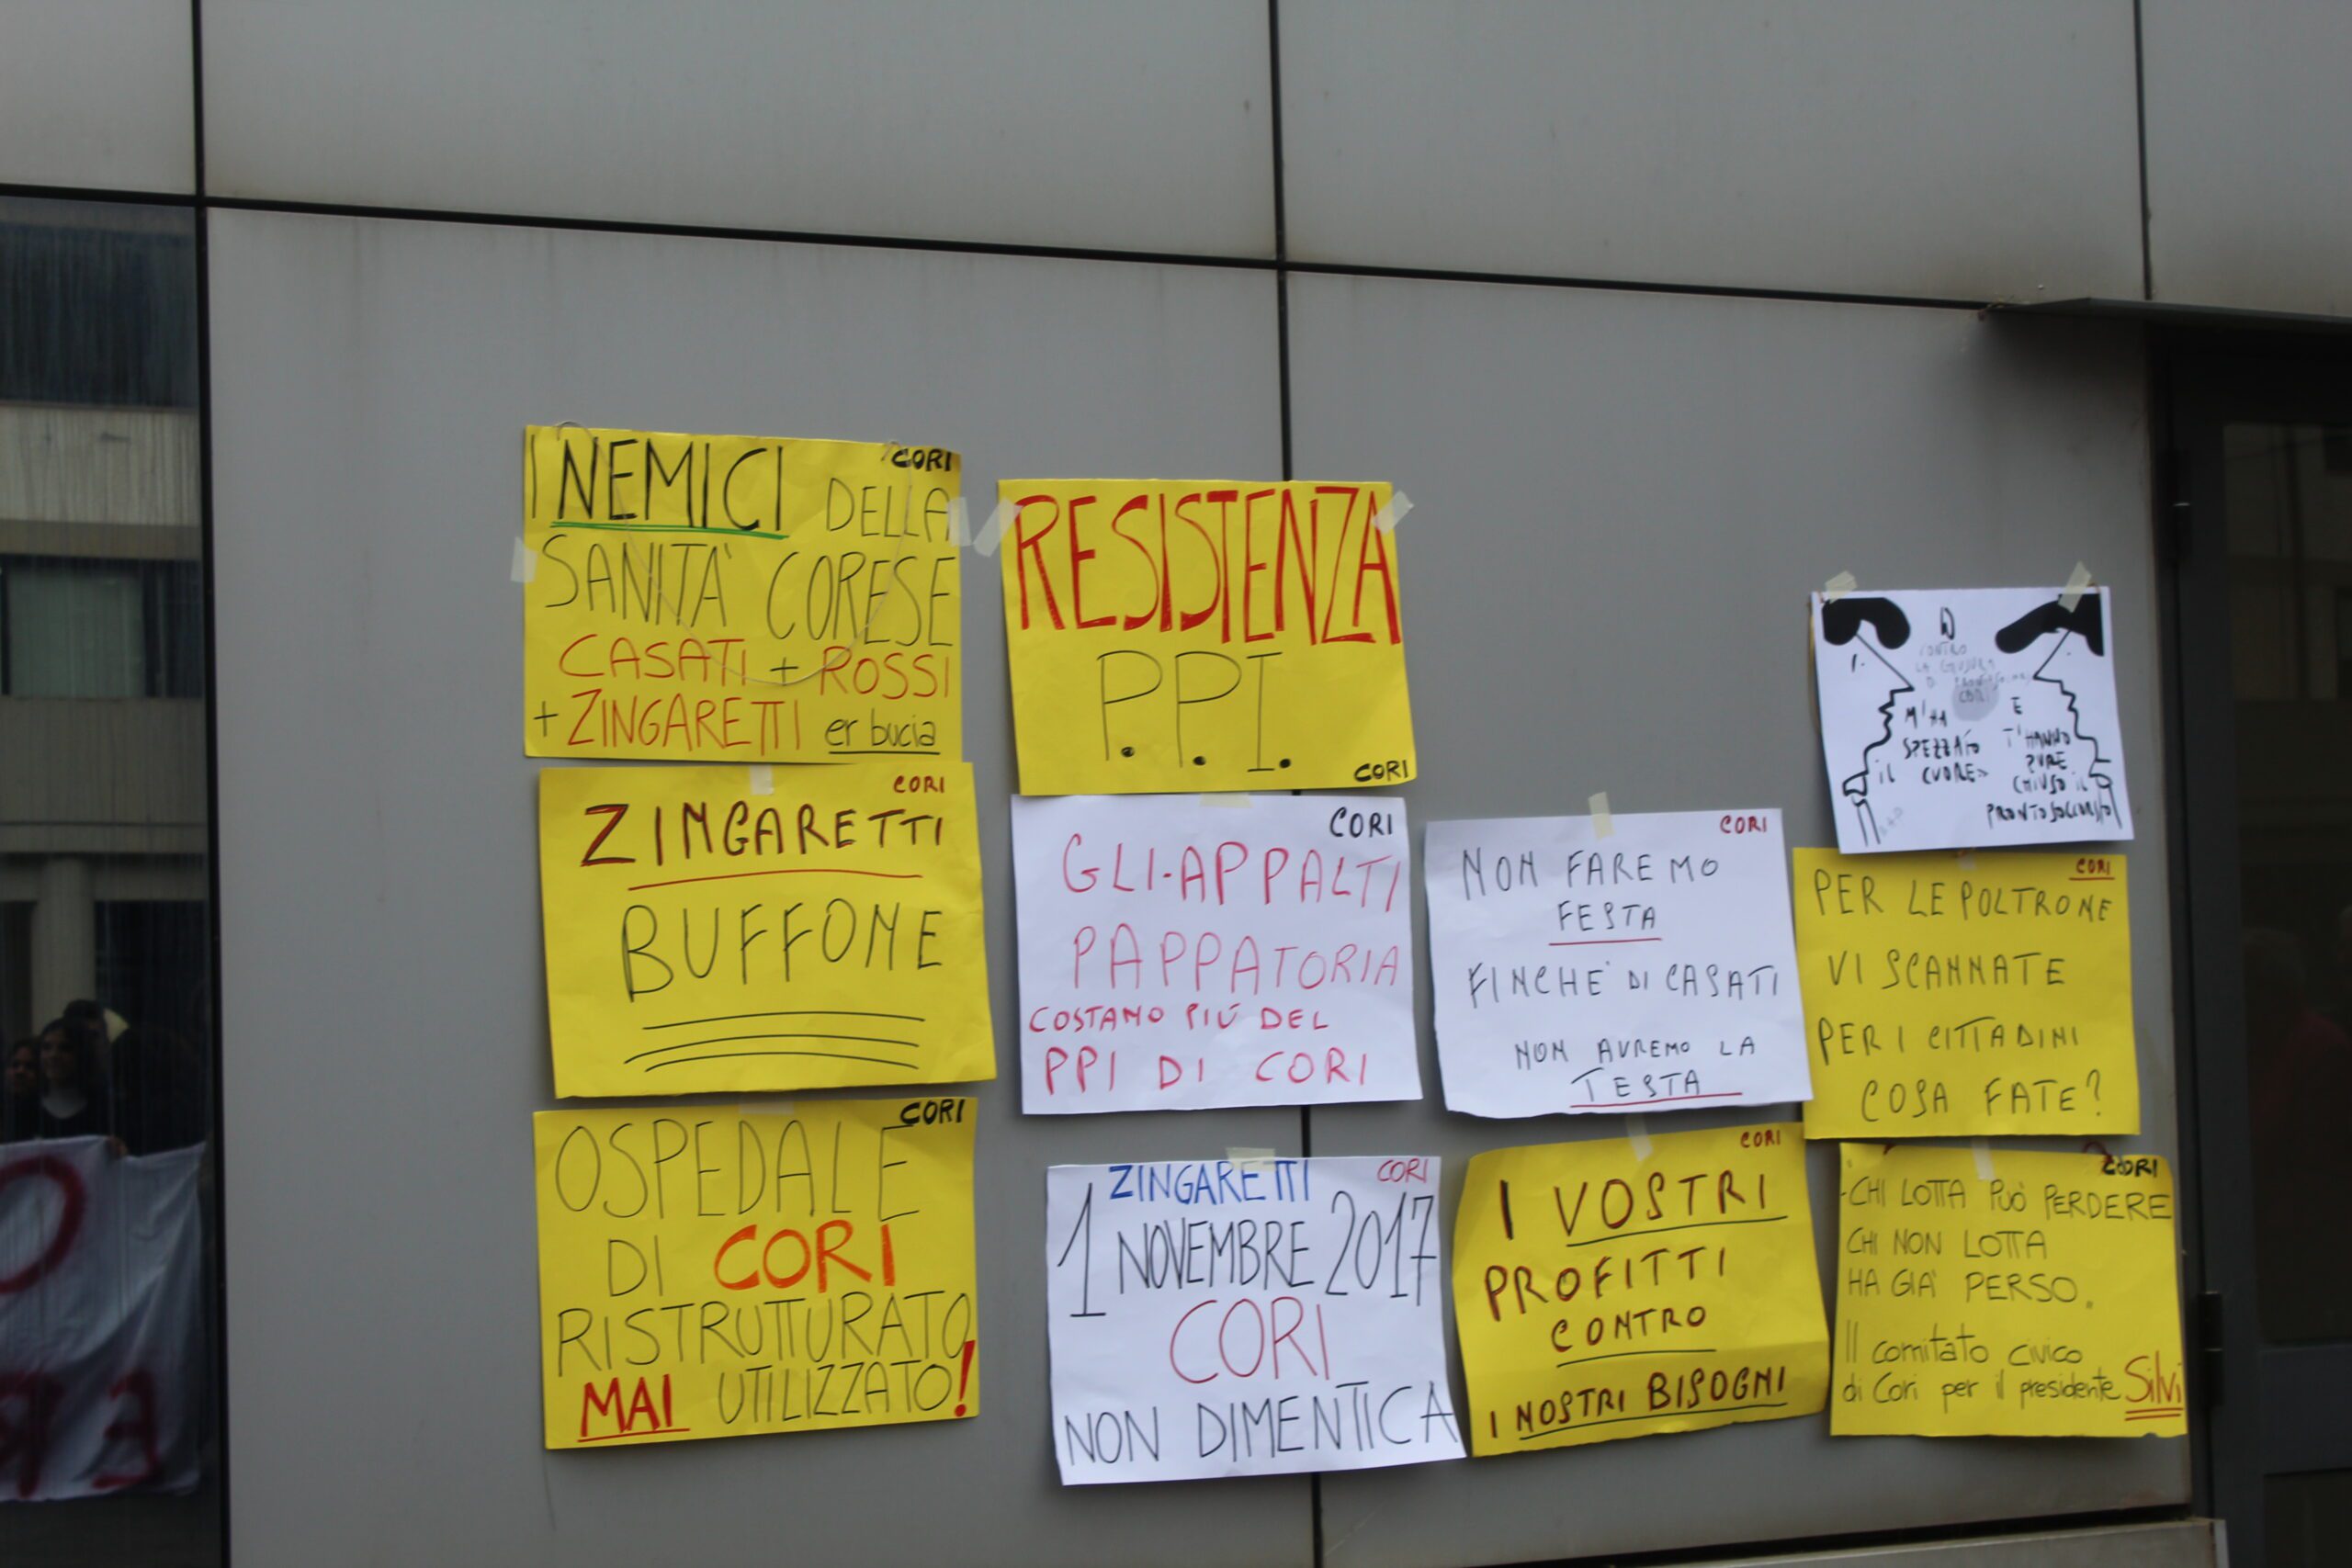 CORI
I NEMICI DELLA
SANITA' CORESE
CASATI + ROSSI
+ ZINGARETTI er bucia
CORI
ZINGARETTI
BUFFONE
CORI
OSPEDALE
DI CORI
RISTRUTTURATO
MAI UTILIZZATO!
RESISTENZA
P.P.I.
CORI
CORI
GLI-APPALTI
PAPPATORIA
COSTANO PIÚ DEL
PPI DI CORI
ZINGARETTI CORI
1 NOVEMBRE 2017
CORI
NON DIMENTICA
CORI
NON FAREMO
FESTA
FINCHE' DI CASATI
NON AVREMO LA
TESTA
CORI
I VOSTRI
PROFITTI
CONTRO
I NOSTRI BISOGNI
CONTRO
M'HA
SPEZZATO
IL CUORE
E
T'HANNO
PURE
CHIUSO IL
PRONTO SOCCORSO
CORI
PER LE POLTRONE
VI SCANNATE
PER I CITTADINI
COSA FATE?
CORI
-CHI LOTTA PUÒ PERDERE
CHI NON LOTTA
HA GIA' PERSO.
Il comitato civico
di Cori per il presidente Silvi